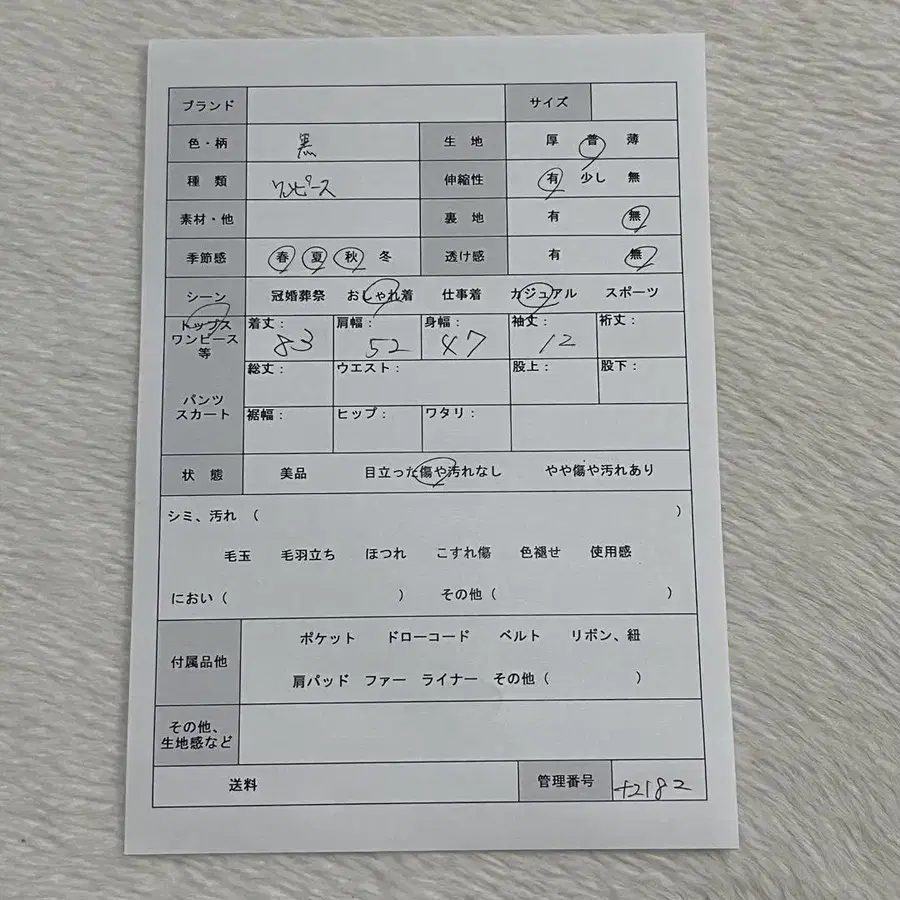 ブランド サイズ
色・柄 黒 生 地 厚 普 薄
種 類 ワンピース 伸縮性 有 少し 無
素材・他 裏 地 有 無
季節感 春 夏 秋 冬 透け感 有 無
シーン 冠婚葬祭 おしゃれ着 仕事着 カジュアル スポーツ
トップス
ワンピース
等
着丈： 83 肩幅： 52 身幅： 47 袖丈： 12 裄丈：
パンツ
スカート
総丈： ウエスト： 股上： 股下：
裾幅： ヒップ： ワタリ：
状 態 美品 目立った傷や汚れなし やや傷や汚れあり
シミ、汚れ （ ）
毛玉 毛羽立ち ほつれ こすれ傷 色褪せ 使用感
におい（ ） その他（ ）
付属品他
ポケット ドローコード ベルト リボン、紐
肩パッド ファー ライナー その他（ ）
その他、
生地感など
送料 管理番号 +2182